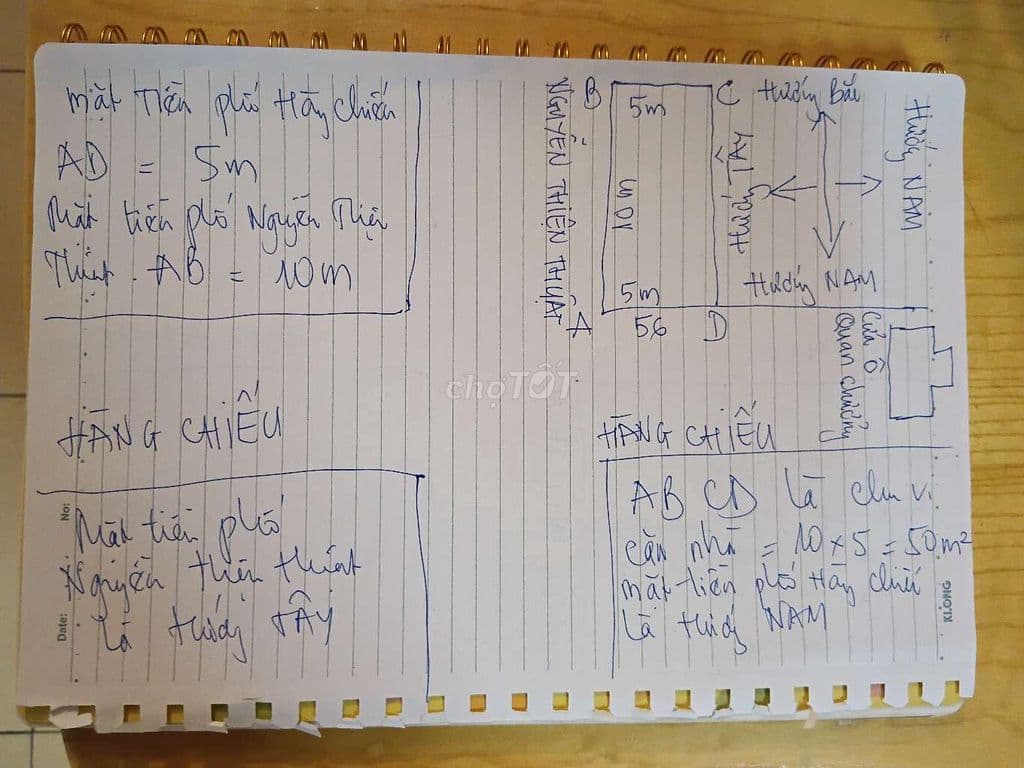 Mặt Tiền phố Hàng Chiếu
AD = 5m
Mặt tiền phố Nguyễn Thiện
Thuật. AB = 10m
HÀNG CHIẾU
Mặt tiền phố
Nguyễn thiện thuật
Là Hướng TÂY
NGUYỄN THIỆN THUẬT
B
5m
C
10m
5m
A
56
D
Hướng Bắc
Hướng TÂY
Hướng NAM
Hướng NAM
Cửa Ô
Quan chưởng
HÀNG CHIẾU
AB CD là chu vi
căn nhà = 10 x 5 = 50 m²
mặt tiền phố Hàng chiếu
Là Hướng NAM
chợTỐT
No:
Date:
KLONG